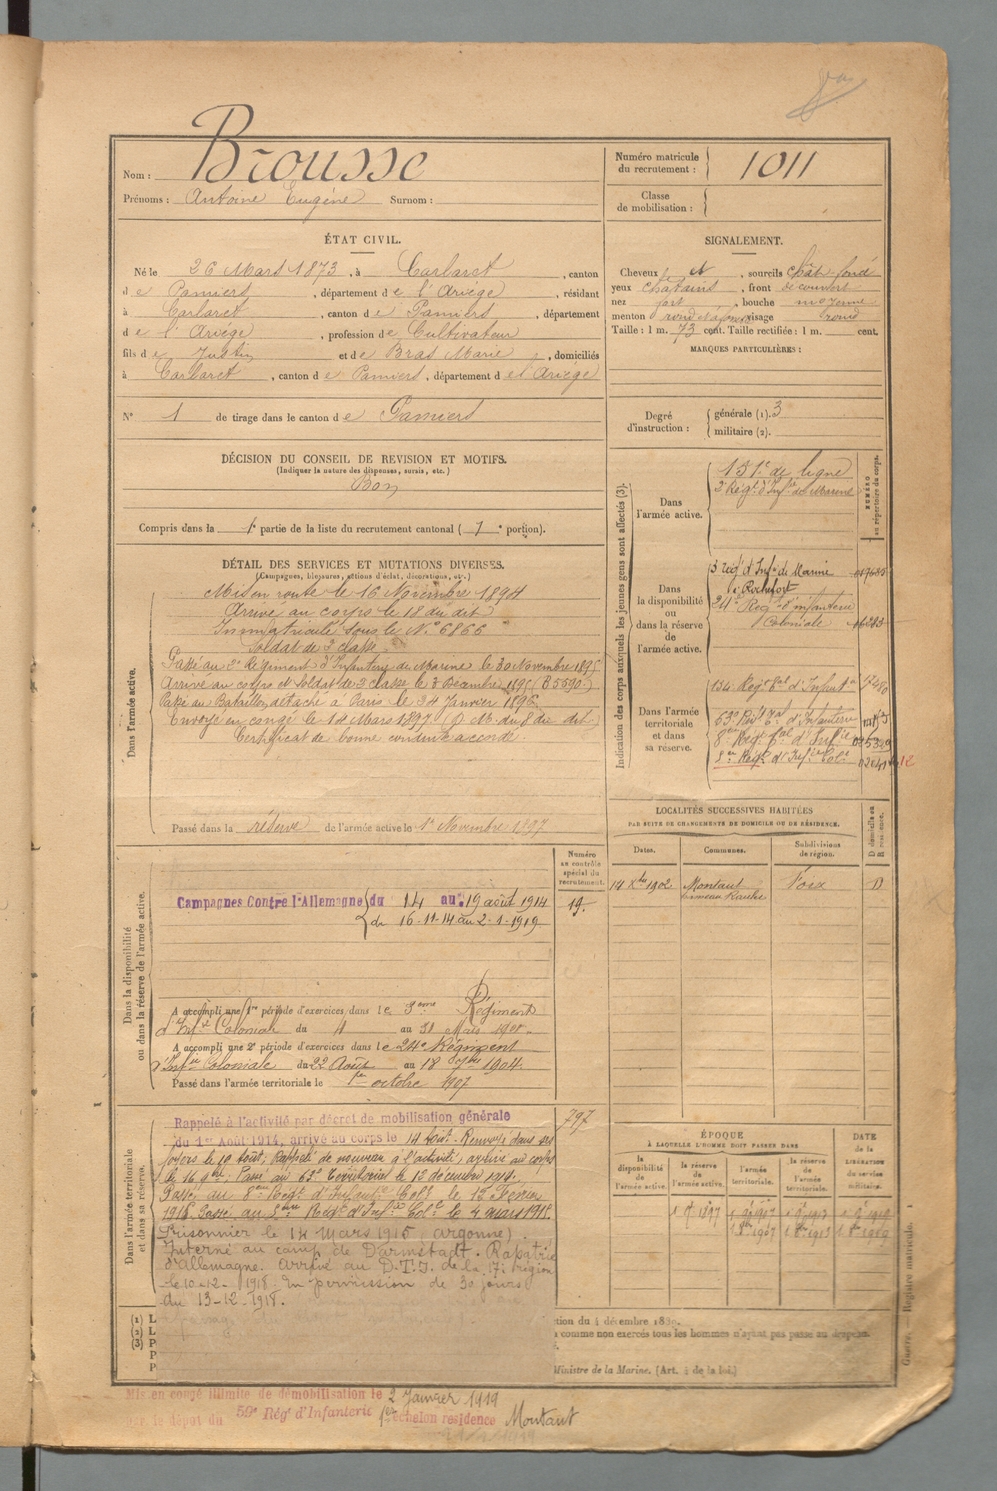 Nom : Brousse
Prénoms : Antoine Eugène Surnom :
Numéro matricule
du recrutement : 1011
Classe
de mobilisation :
ÉTAT CIVIL.
Né le 26 Mars 1873, à Carlaret, canton
de Pamiers, département de l'Ariège, résidant
à Carlaret, canton de Pamiers, département
de l'Ariège, profession de Cultivateur
fils de Justin et de Bras Marie, domiciliés
à Carlaret, canton de Pamiers, département de l'Ariège
N° 1 de tirage dans le canton de Pamiers
SIGNALEMENT.
Cheveux et, sourcils chât. foncé
yeux chatains, front découvert
nez fort, bouche moyenne
menton rond visage rond
Taille : 1 m. 73 cent. Taille rectifiée : 1 m. cent.
MARQUES PARTICULIÈRES :
Degré
d'instruction :
générale (1). 3
militaire (2).
DÉCISION DU CONSEIL DE REVISION ET MOTIFS.
(Indiquer la nature des dispenses, sursis, etc.)
Bon
Compris dans la 1e partie de la liste du recrutement cantonal (1e portion).
DÉTAIL DES SERVICES ET MUTATIONS DIVERSES.
(Campagnes, blessures, actions d'éclat, décorations, etc.)
Dans l'armée active.
Mis en route le 16 Novembre 1894
Arrivé au corps le 18 du dit
Immatriculé sous le N° 6866
Soldat de 2e classe
Passé au 3e Régiment d'Infanterie de Marine le 30 Novembre 1895
Arrivé au corps et Soldat de 2e classe le 3 Décembre 1895 (B 5590.)
Passé au Bataillon détaché à Paris le 24 Janvier 1896.
Envoyé en congé le 14 Mars 1897 (D. M. du 8 du dit)
Certificat de bonne conduite accordé.
Passé dans la réserve de l'armée active le 1er Novembre 1897
Indication des corps auxquels les jeunes gens sont affectés (3).
NUMÉRO
au répertoire du corps.
Dans
l'armée active.
151e de ligne
3e Régt d'Infie de Marine
Dans
la disponibilité
ou
dans la réserve
de
l'armée active.
3 régt d'Infie de Marine
à Rochefort
24e Régt d'infanterie
Coloniale
Dans l'armée
territoriale
et dans
sa réserve.
134e Régt Tal d'Infantie
63e Régt Tal d'Infanterie
8eme Régt Tal d'Infie
5eme Régt d'Infie Colle
LOCALITÉS SUCCESSIVES HABITÉES
PAR SUITE DE CHANGEMENTS DE DOMICILE OU DE RÉSIDENCE.
D domicile ou
R résidence.
Dates. Communes. Subdivisions
de région.
14 Xbre 1902 Montaut Foix D
hameau
Dans la disponibilité
ou dans la réserve de l'armée active.
Numéro
au contrôle
spécial du
recrutement.
Campagnes Contre l'Allemagne du 14 au 19 août 1914 19.
du 16-11-14 au 2-1-1919
A accompli une 1re période d'exercices, dans le 3eme Régiment
d'Infie Coloniale du 4 au 31 Mars 1901
A accompli une 2e période d'exercices dans le 24e Régiment
d'Infie Coloniale du 22 Août au 18 7bre 1904
Passé dans l'armée territoriale le 1er octobre 1907
Dans l'armée territoriale
et dans sa réserve.
Rappelé à l'activité par décret de mobilisation générale 797
du 1er Août 1914, arrivé au corps le 14 Août. Renvoyé dans ses
foyers le 19 Août; Rappelé de nouveau à l'activité; arrivé au corps
le 16 9bre; Passé au 63e Territorial le 13 décembre 1914.
Passé au 8eme Régt d'Infantie Colle le 12 Février
1915. Passé au 5eme Régt d'Infie Colle le 4 mars 1915.
Prisonnier le 14 mars 1915 (Argonne).
Interné au camp de Darmstadt. Rapatrié
d'Allemagne. Arrivé au D.T.I. de la 17e région
le 10-12-1918. En permission de 30 jours
du 13-12-1918.
ÉPOQUE
À LAQUELLE L'HOMME DOIT PASSER DANS
la
disponibilité
de
l'armée active.
la réserve
de
l'armée active.
l'armée
territoriale.
la réserve
de
l'armée
territoriale.
DATE
de la
LIBÉRATION
du service
militaire.
(1) L
(2) L
(3) P
P
P
comme non exercés tous les hommes n'ayant pas passé au drapeau
Ministre de la Marine. (Art. 4 de la loi.)
Guerre. — Registre matricule.
Mis en congé illimité de démobilisation le 2 Janvier 1919
par le dépôt du 59e Régt d'Infanterie 1er échelon résidence Montaut